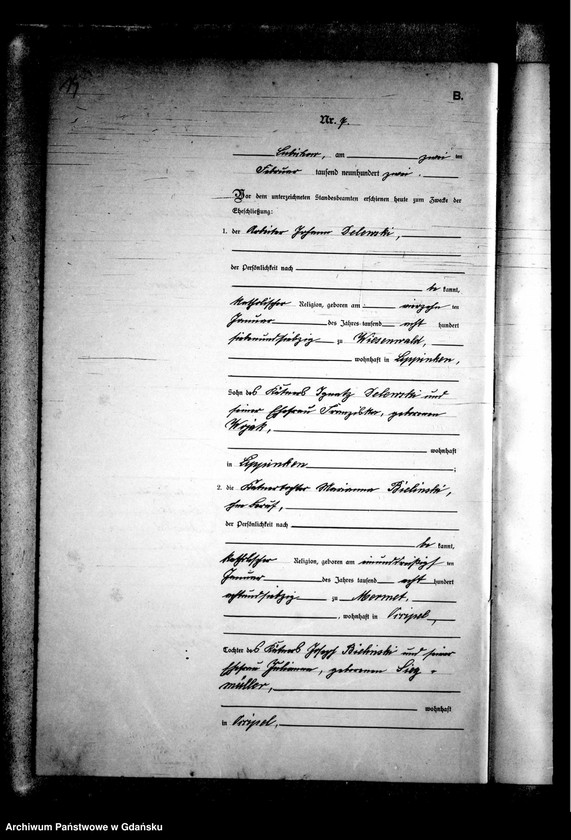 B.
Nr. 7.
Lubichow, am zwei ten
Februar tausend neunhundert zwei.
Vor dem unterzeichneten Standesbeamten erschienen heute zum Zwecke der
Eheschließung:
1. der Arbeiter Johann Delewski,
der Persönlichkeit nach
be kannt,
katholischer Religion, geboren am vierzehn ten
Januar des Jahres tausend acht hundert
siebenundsiebzig zu Wiesenwald,
wohnhaft in Leppinken,
Sohn des Kätners Ignatz Delewski und
seiner Ehefrau Franziska, geborenen
Wojak,
wohnhaft
in Leppinken ;
2. die Kätnertochter Marianna Bielinski,
ohne Beruf,
der Persönlichkeit nach
be kannt,
katholischer Religion, geboren am einunddreißigst ten
Januar des Jahres tausend acht hundert
achtundsiebzig zu Mermet,
, wohnhaft in
Tochter des Kätners Joseph Bielinski und seiner
Ehefrau Julianna, geborenen
müller,
wohnhaft
in
Archiwum Państwowe w Gdańsku